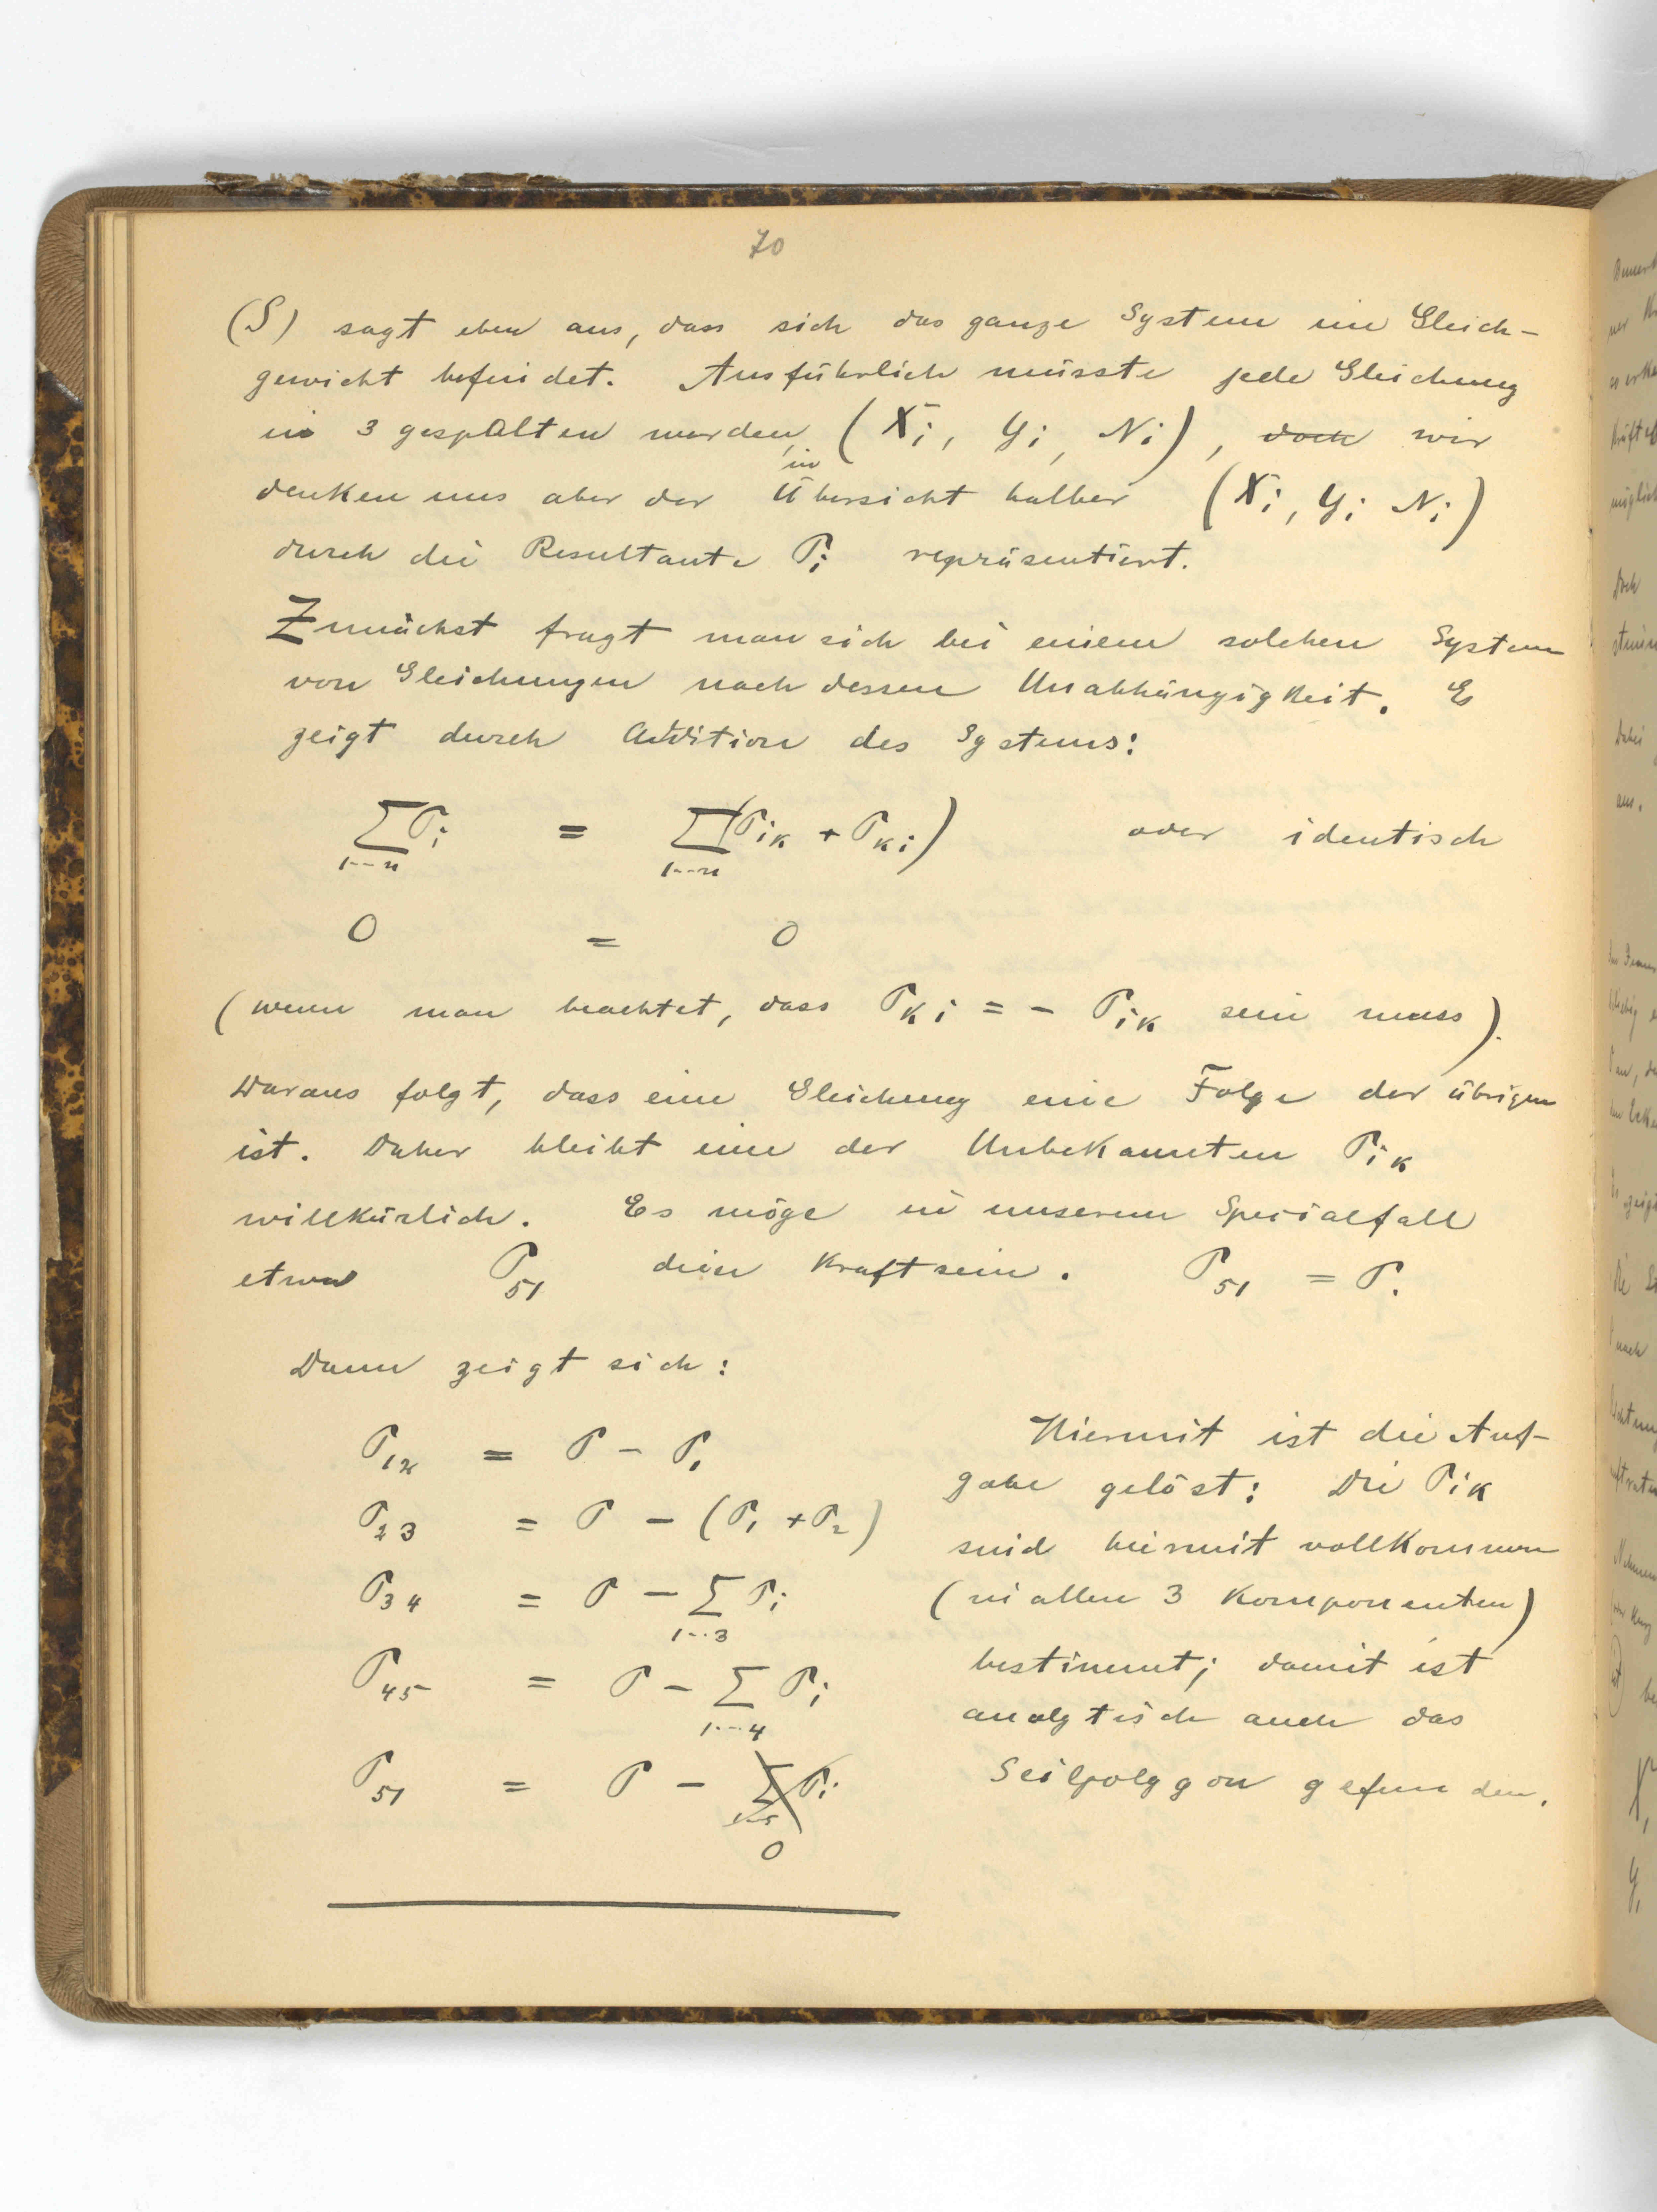 70
(S) sagt eben aus, dass sich das ganze System im Gleich-
gewicht befindet. Ausführlich müsste jede Gleichung
in 3 gespalten werden, (Xi, Yi, Ni), doch wir
in
denken uns aber der Übersicht halber (Xi, Yi Ni)
durch die Resultante Pi repräsentiert.
Zunächst fragt man sich bei einem solchen System
von Gleichungen nach dessen Unabhängigkeit. Es
zeigt durch Addition des Systems:
∑ Pi = ∑ (Pik + Pki) oder identisch
1--n 1--n
0 = 0
(wenn man beachtet, dass Pki = - Pik sein muss).
Daraus folgt, dass eine Gleichung eine Folge der übrigen
ist. Daher bleibt eine der Unbekannten Pik
willkürlich. Es möge in unserem Spezialfall
etwa P51 diese Kraft sein. P51 = P.
Dann zeigt sich:
P12 = P - P1
P23 = P - (P1 + P2)
P34 = P - ∑ Pi
1--3
P45 = P - ∑ Pi
1---4
P51 = P - ∑ Pi
1--5
0
Hiermit ist die Auf-
gabe gelöst: Die Pik
sind hiermit vollkommen
(in allen 3 Komponenten)
bestimmt; damit ist
analytisch auch das
Seilpolygon gefunden.